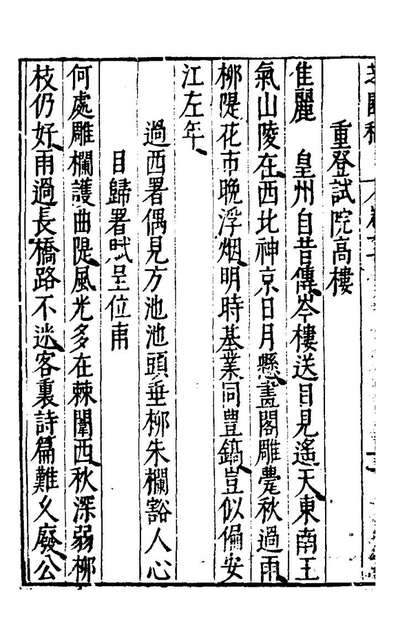 重登試院高樓
佳麗 皇州自昔傳岑樓送目見遙天東南王
氣山陵在西北神京日月懸畫閣雕甍秋過雨
柳隄花市晚浮烟明時基業同豊鎬豈似偏安
江左年
過西署偶見方池池頭垂柳朱欄豁人心
目歸署賦呈位甫
何處雕欄護曲隄風光多在棘闈西秋深弱柳
枝仍好雨過長橋路不迷客裏詩篇難久廢公